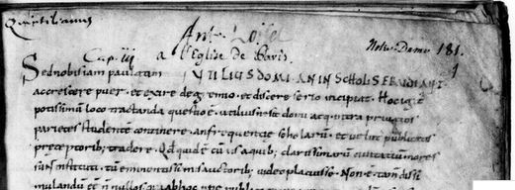 Quintilianus
Ant. Loisel
Notre Dame 181.
Cap. iii a l'Eglise de Paris.
Sed nobis iam paulatim UTILIUS DOMI AN IN SCHOLIS ERUDIANT
accrescere puer et exire de gremio et discere serio incipiat. Hoc igit̄ ē
potissimū loco tractanda questio ē utiliusne sit domi atq; intra privatos
parietes studentē continere. an frequentie scholarū et velut publicis
preceptoribꝫ tradere. Qd quidē cū iis a quibꝫ clarissimarū civitatū mores
sunt instituti. tū eminentissimis auctoribꝫ video placuisse. Non ē tam dissi
mulandū eē nnullos qui ab hoc